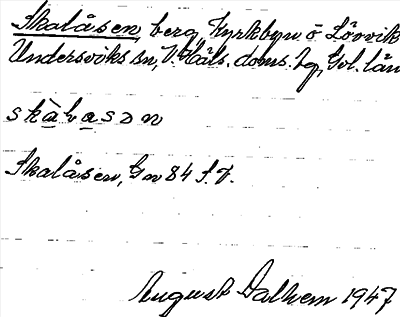 Skalåsen, berg, Kyrkbyn ö Lörvik
Undersviks sn, V. Häls. doms. hg, Gvl. län
skàlason
Skalåsen, Gn 84 S.V.
August Dalhem 1947